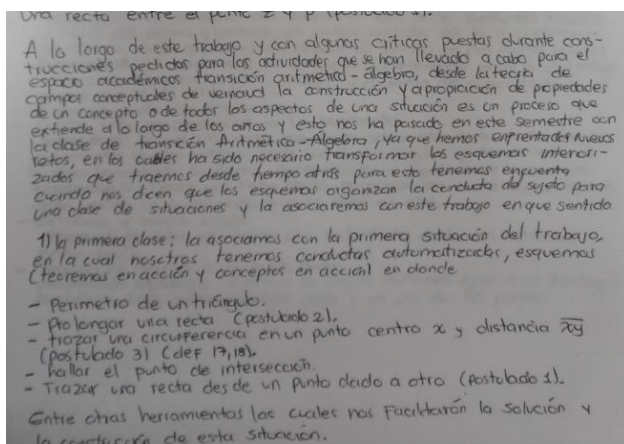 una recta entre el punto z y p (postulado 1).
A lo largo de este trabajo y con algunas críticas puestas durante cons-
trucciones pedidas para las actividades que se han llevado a cabo para el
espacio académicos transición aritmética - álgebra, desde la teoría de
campos conceptuales de vernaud la construcción y apropiación de propiedades
de un concepto o de todos los aspectos de una situación es un proceso que
extiende a lo largo de los años y esto nos ha pasado en este semestre con
la clase de transición Aritmética - Álgebra, ya que hemos enfrentados nuevos
retos, en los cuales ha sido necesario transformar los esquemas interiori-
zados que traemos desde tiempo atrás para esto tenemos encuenta
cuando nos dicen que los esquemas organizan la conducta del sujeto para
una clase de situaciones y la asociaremos con este trabajo en que sentido
1) la primera clase: la asociamos con la primera situación del trabajo,
en la cual nosotros tenemos conductas automatizadas, esquemas
(teoremas en acción y conceptos en acción) en donde
- Perimetro de un triángulo.
- Prolongar una recta (postulado 2).
- trazar una circunferencia en un punto centro x y distancia xy
(postulado 3) (def 17,18).
- hallar el punto de intersección.
- Trazar una recta desde un punto dado a otro (postulado 1).
Entre otras herramientas las cuales nos facilitarón la solución y
la construcción de esta situación.